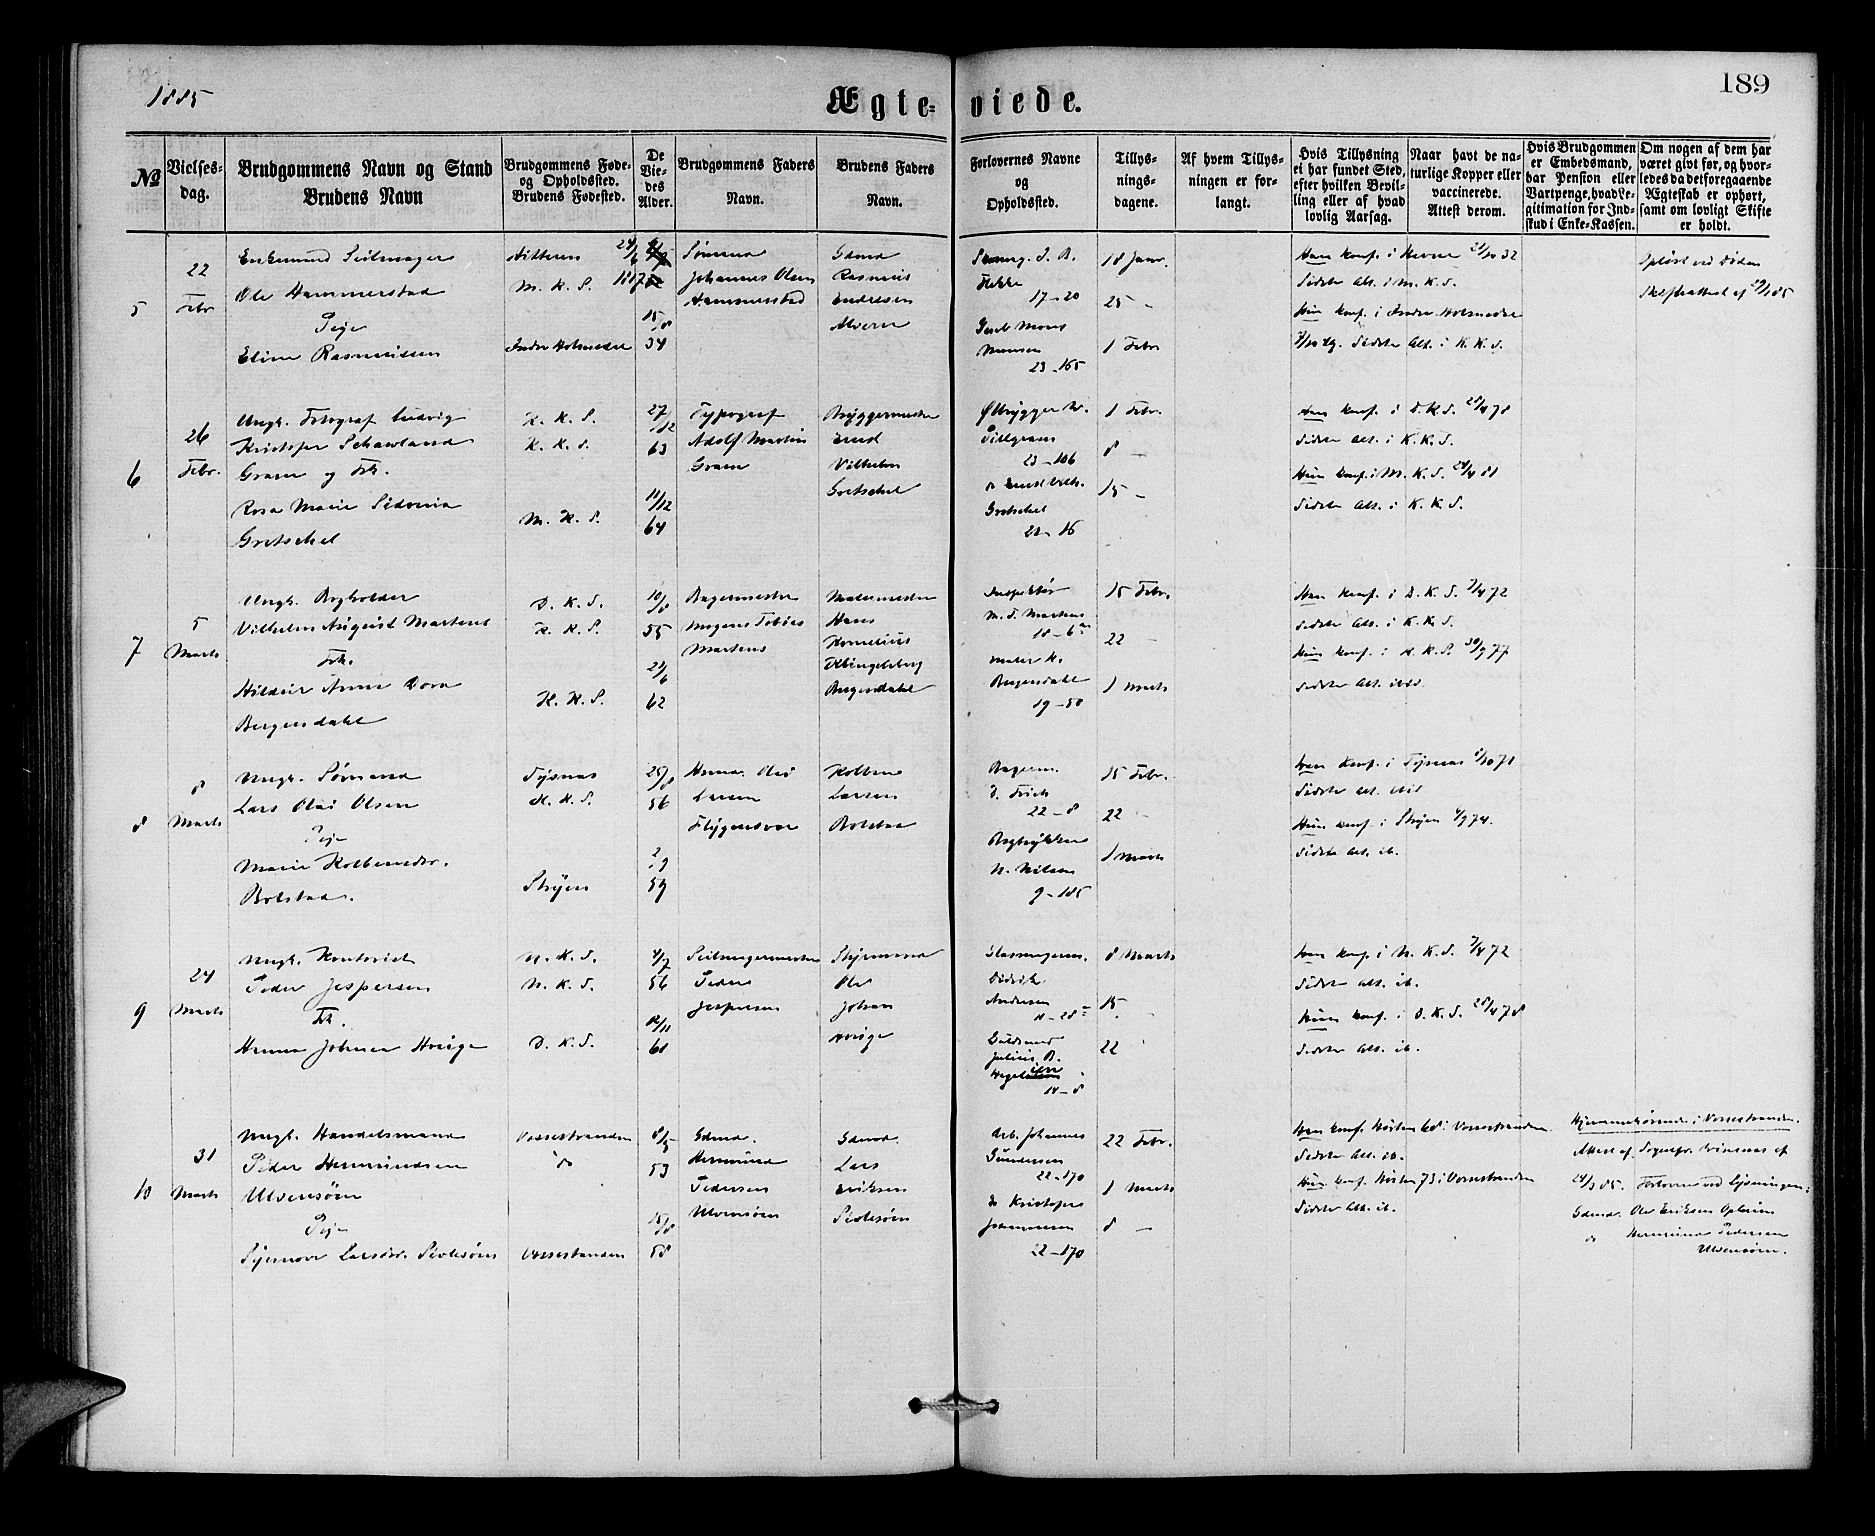 1885
Ægteviede.
189
No
Vielsesdag.
Brudgommens Navn og Stand
Brudens Navn
Brudgommens Føde- og Opholdssted.
Brudens Fødested.
De Viedes Alder.
Brudgommens Faders Navn.
Brudens Faders Navn.
Forlovernes Navne og Opholdssted.
Tillysningsdagene.
Af hvem Tillysningen er forlangt.
Hvis Tillysning ei har fundet Sted, efter hvilken Bevilling eller af hvad lovlig Aarsag.
Naar havt de naturlige Kopper eller vaccinerede. Attest derom.
Hvis Brudgommen er Embedsmand, har Pension eller Vartpenge, hvad Legitimation for Indskud i Enke-Kassen.
Om nogen af dem har været givt før, og hvorledes da det foregaaende Ægteskab er ophørt, samt om lovligt Skifte er holdt.
5
22 Febr
Enkemand Seilmager
Ole Hammerstad
Pige
Eline Rasmussen
Hitteren
M. K. S.
Indre Holmedal
1817
15/8 34
Sømand
Johannes Olsen
Hammerstad
Gdmd
Rasmus
Endresen
Alvern
17-20
Mons
Monsen
23-165
18 Janr.
25 -
1 Febr
Han konf. i Hevne 21/10 32
Sidste Alt. i M. K. S.
Hun konf. i Indre Holmedal
Sidste Alt. i K. K. S.
Opløst ved Døden
Skifteattest af 29/1 85
6
26 Febr.
Ungk. Fotograf Ludvig
Kristofer Schawland
Graan og Frk.
Rosa Marie Sidonia
Gretschel
K. K. S.
K. K. S.
M. K. S.
27/12 63
11/12 64
Typograf
Adolf Martin
Graan
Bryggermester
Ernst
Vilhelm
Gretschel
Ølbrygger W.
Pillgram
23-106
Ernst Vilh.
Gretschel
21-16
1 Febr.
8 -
15 -
Han konf. i D. K. S. 28/4 78
Sidste Alt. i K. K. S.
Hun konf. i M. K. S. 24/4 81
Sidste Alt. i K. K. S.
7
5 Marts
Ungk. Bogholder
Vilhelm August Martens
Frk.
Hildur Anna Dora
Bergendahl
D. K. S.
K. K. S.
K. K. S.
10/8 55
21/6 62
Bagermester
Mogens Tobias
Martens
Malermester
Hans
Kornelius
Klingelberg
Bergendahl
Inspektør
M. T. Martens
18-6
Maler K.
Bergendahl
19-50
15 Febr.
22 -
1 Marts
Han konf. i D. K. S. 7/4 72
Sidste Alt. i K. K. S.
Hun konf. i K. K. S. 30/9 77
Sidste Alt. ibid.
8
8 Marts
Ungk. Sømand
Lars Olai Olsen
Pige
Marie Kolbensdtr.
Bolstad.
Tysnæs
K. K. S.
Stryen
25/8 56
2/9 59
Larsen
Flygansvær
Kolben
Larsen
Bolstad
Bagerm.
J. Friis
22-8
N. Nilsen
9-185
15 Febr.
22 -
1 Marts
Han konf. i Tysnæs 1/10 71
Sidste Alt. ibid
Hun konf. i Stryen 6/9 74.
Sidste Alt. ib.
9
24 Marts
Ungk. Kontorist
Peder Jespersen
Frk.
Hanna Johnsen Horige
N. K. S.
N. K. S.
D. K. S.
4/7 56
61
Seilmagermester
Peder
Jespersen
Styrmand
Ole
Johan
Horige
Glasmagerm.
Didrik
Andersen
Guldsmed
Julius B.
14-8
8 Marts
15 -
22
Han konf. i N. K. S. 7/4 72
Sidste Alt. ib.
Hun konf. i D. K. S. 28/4 78
Sidste Alt. ib.
10
31 Marts
Ungk. Handelsmand
Peder Hermundsen
Ulvensøen
Pige
Larsdtr.
Vossestranden
do
Vossestranden
53
58
Gdmd.
Hermund
Pedersen
Ulvensøen
Gdmd.
Lars
Eriksen
Arb. Johannes
Gundersen
22-170
do Kristofer
Johannesen
22-170
22 Febr.
1 Marts
8 -
Han konf. Høsten 68 i Vossestranden
Sidste Alt. ib.
Hun konf. Høsten 73 i Vossestranden
Sidste Alt. ib.
Hjemmehørende i Vossestranden.
Attest af Sognepr. af
24/3 85. Forlovere ved Lysningen:
Gdmd. Ole Eriksen
do Hermund Pedersen
Ulvensøen.